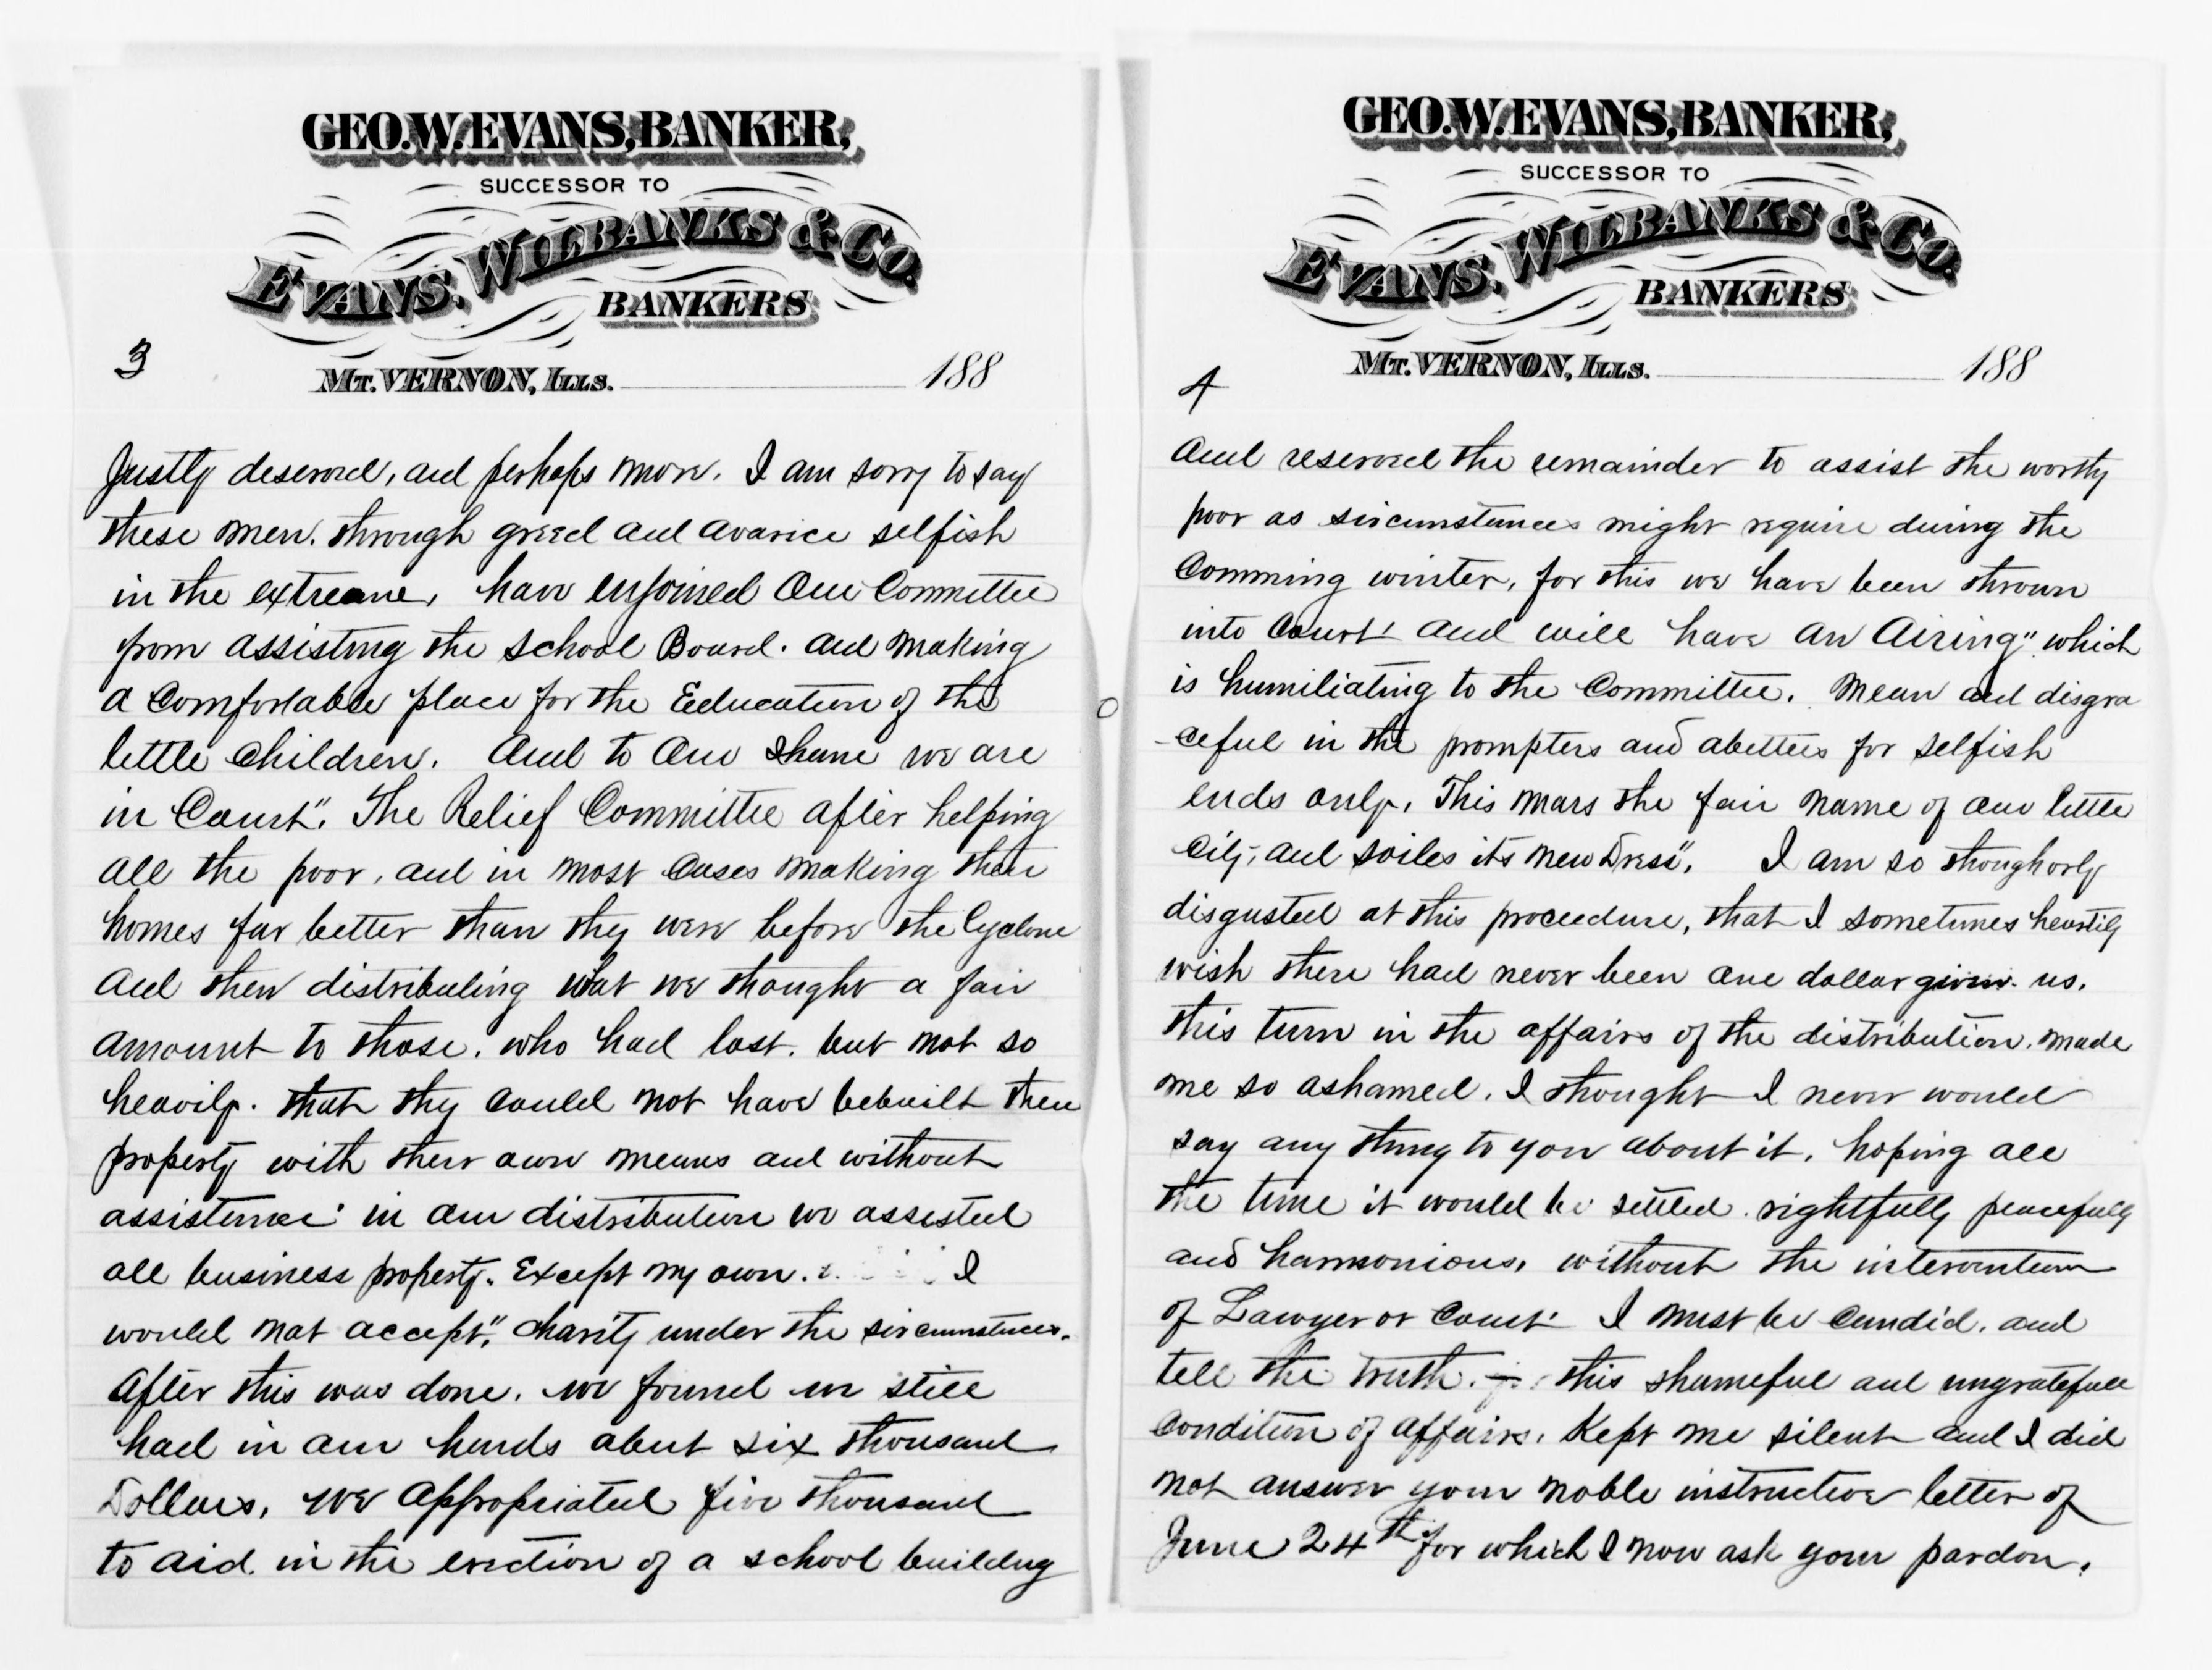 GEO. W. EVANS, BANKER,
SUCCESSOR TO
EVANS, WILBANKS & CO.
BANKERS
3
MT. VERNON, ILLS. 188
Justly deserved, and perhaps more. I am sorry to say
these men. through greed and avarice selfish
in the extreame, have enjoined Our Committee
from assisting the school Board. and making
a Comfortable place for the Eeducation of the
little children. And to Our Shame we are
in Court". The Relief Committee after helping
all the poor, and in most Cases making their
homes far better than they were before the Cyclone
and then distributing what we thought a fair
amount to those. who had lost. but not so
heavily. that they could not have bebuilt their
property with their own means and without
assistance. in our distribution we assisted
all business property. Except my own. I
would not accept", charity under the sircumstances.
After this was done. we found we still
had in our hands about six thousand
Dollars, we appropriated five thousand
to aid in the erection of a school building
GEO. W. EVANS, BANKER,
SUCCESSOR TO
EVANS, WILBANKS & CO.
BANKERS
MT. VERNON, ILLS. 188
4
And reserved the remainder to assist the worthy
poor as sircumstances might require during the
Comming winter, for this we have been thrown
into Court and will have an Airing" which
is humiliating to the Committee. Mean and disgra
-ceful in the prompters and abetters for selfish
ends only. This mars the fair name of our little
City, and soiles its new Dress". I am so thoughorly
disgusted at this proceedure, that I sometimes heartily
wish there had never been one dollar given us.
this turn in the affairs of the distribution. made
me so ashamed. I thought I never would
say any thing to you about it, hoping all
the time it would be settled rightfully peacefully
and harmonious, without the intervention
of Lawyer or Court. I must be Candid, and
tell the truth. this shameful and ungratefull
Condition of affairs. Kept me silent and I did
not answer your noble instructive letter of
June 24th for which I now ask your pardon.